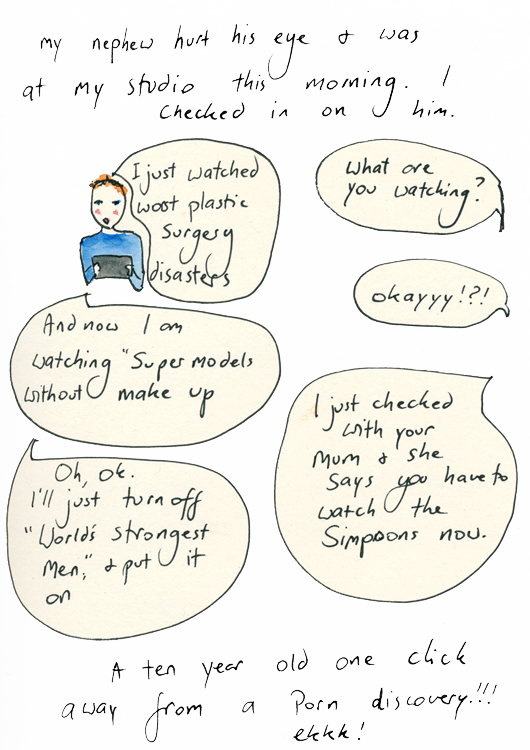 my nephew hurt his eye & was
at my studio this morning. I
checked in on him.
What are
you watching?
I just watched
wost plastic
surgery
disasters
okayyy!?!
And now I am
watching "Super models
without make up
I just checked
with your
Mum & she
says you have to
watch the
Simpsons now.
Oh, ok.
I'll just turn off
"World's strongest
Men," & put it
on
A ten year old one click
away from a Porn discovery!!!
ekkk!